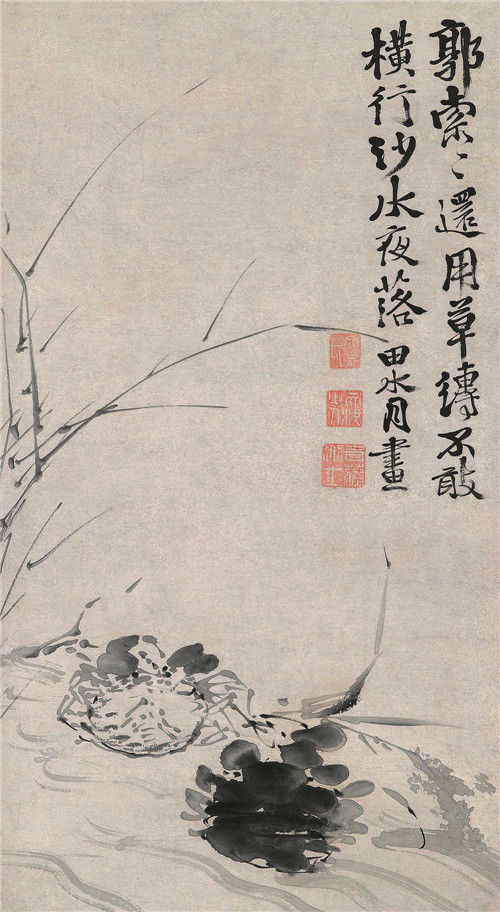 郭索郭索還用草縛不敢
橫行沙水夜落田水月畫